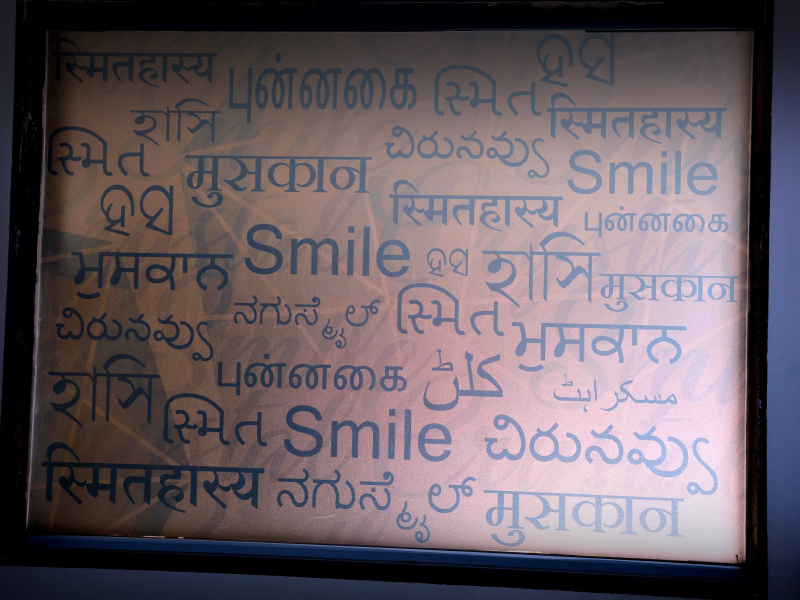 स्मितहास्य புன்னகை સ્મિત ହସ
হাসি स्मितहास्य
સ્મિત मुसकान చిరునవ్వు Smile
ହସ स्मितहास्य புன்னகை
ਮੁਸਕਾਨ Smile ହସ হাসি मुसकान
చిరునవ్వు ನಗುಸ್ಮೈಲ್ સ્મિત ਮੁਸਕਾਨ
হাসি புன்னகை مسکراہٹ
સ્મિત Smile చిరునవ్వు
स्मितहास्य ನಗುಸ್ಮೈಲ್ मुसकान